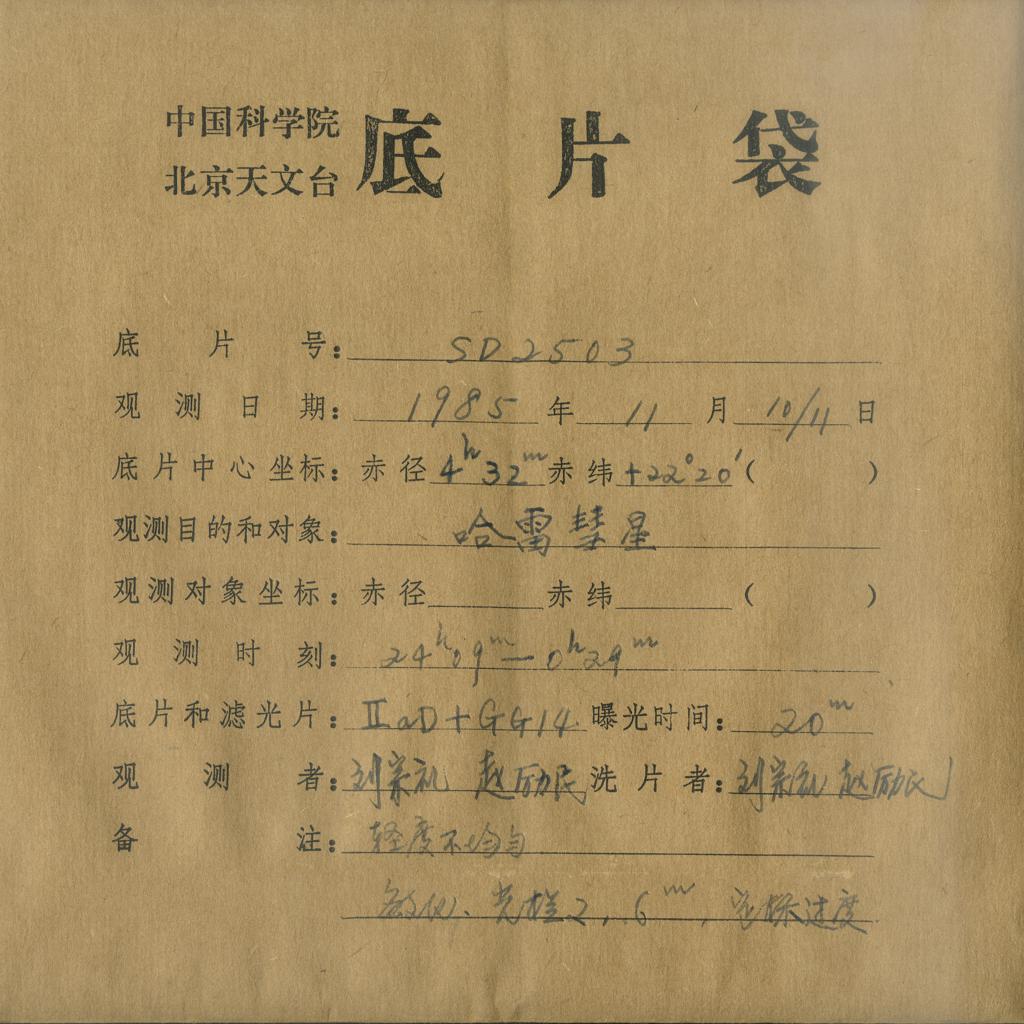 中国科学院
北京天文台
底片袋
底片号: SD2503
观测日期: 1985年11月10/11日
底片中心坐标: 赤径 4h32m 赤纬 +22°20′ ( )
观测目的和对象: 哈雷彗星
观测对象坐标: 赤径 赤纬 ( )
观测时刻: 24h09m—0h29m
底片和滤光片: ⅡaD+GG14 曝光时间: 20m
观测者: 刘宗礼 赵励民 洗片者: 刘宗礼 赵励民
备注: 轻度不均匀
光栏2, 6m,